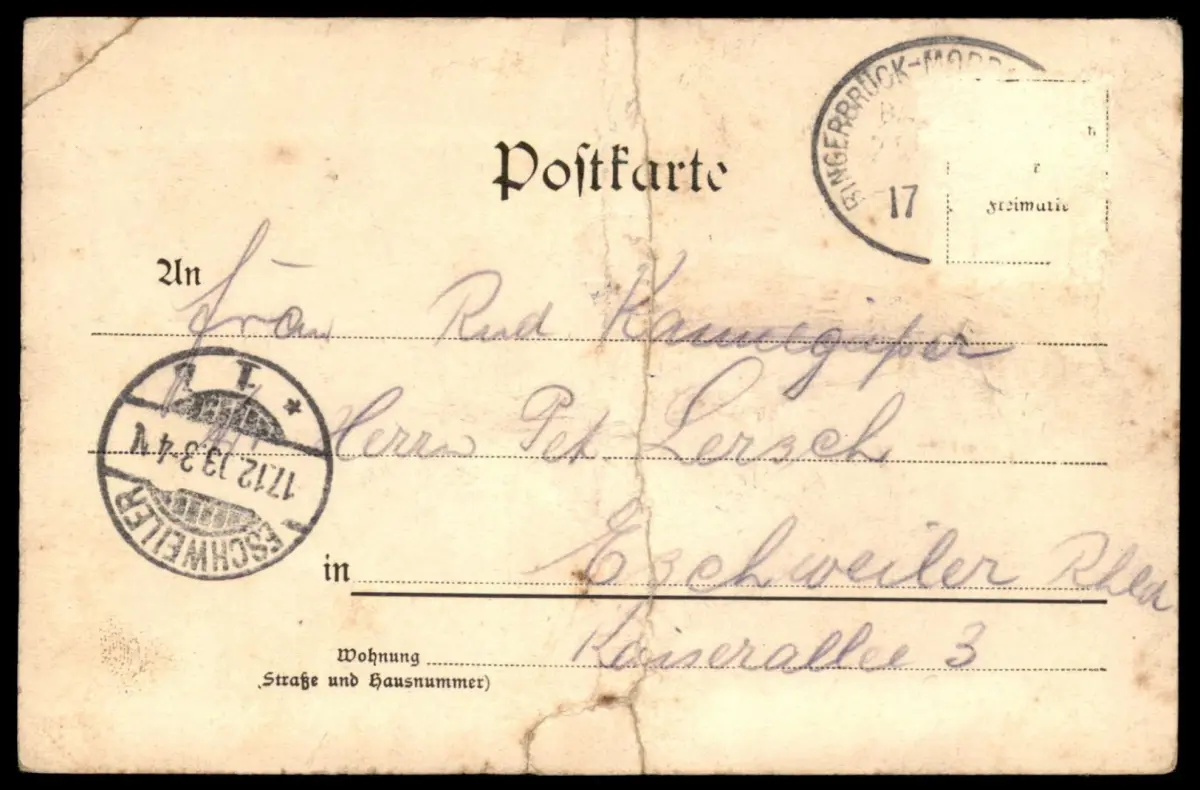 Postkarte
BINGERBRÜCK-MO
17
Freimarke
An Frau Rud
Herrn Pet Lersch
in Eschweiler Rhld
Wohnung Kaiserallee 3
(Straße und Hausnummer)
17.12.13.3-4 N
ESCHWEILER
* 1